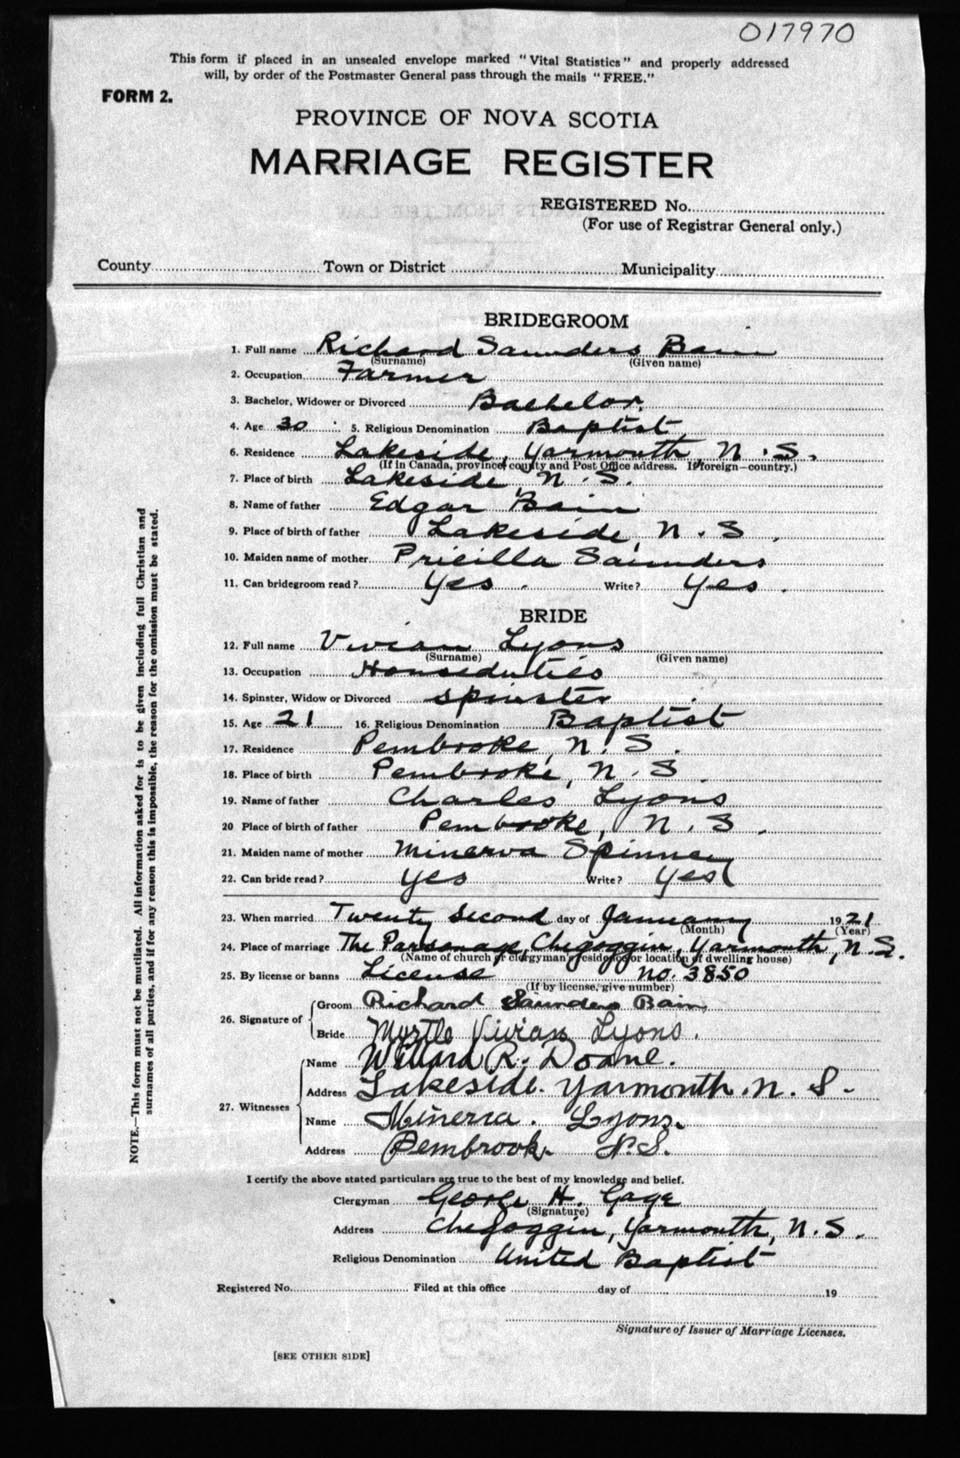 017970
This form if placed in an unsealed envelope marked "Vital Statistics" and properly addressed
will, by order of the Postmaster General pass through the mails "FREE."
FORM 2.
PROVINCE OF NOVA SCOTIA
MARRIAGE REGISTER
REGISTERED No.
(For use of Registrar General only.)
County Town or District Municipality
BRIDEGROOM
1. Full name Richard Saunders Bain
(Surname) (Given name)
2. Occupation Farmer
3. Bachelor, Widower or Divorced Bachelor.
4. Age 30 5. Religious Denomination Baptist
6. Residence Lakeside, Yarmouth, N.S.
(If in Canada, province, county and Post Office address. If foreign—country.)
7. Place of birth Lakeside, N.S.
8. Name of father Edgar Bain
9. Place of birth of father Lakeside, N.S.
10. Maiden name of mother Pricilla Saunders
11. Can bridegroom read? Yes. Write? Yes.
BRIDE
12. Full name Vivian Lyons
(Surname) (Given name)
13. Occupation Houseduties
14. Spinster, Widow or Divorced Spinster
15. Age 21 16. Religious Denomination Baptist
17. Residence Pembroke, N.S.
18. Place of birth Pembroke, N.S.
19. Name of father Charles Lyons
20 Place of birth of father Pembrooke, N.S.
21. Maiden name of mother Minerva Spinney
22. Can bride read? Yes Write? Yes
23. When married Twenty Second day of January 1921
(Month) (Year)
24. Place of marriage The Parsonage, Chegoggin, Yarmouth, N.S.
(Name of church or clergyman's residence or location of dwelling house)
25. By license or banns License no. 3850
(If by license, give number)
26. Signature of Groom Richard Saunders Bain
Bride Myrtle Vivian Lyons.
27. Witnesses Name Willard R. Doane.
Address Lakeside. Yarmouth. N. S.
Name Minerva. Lyons.
Address Pembrook. N.S.
I certify the above stated particulars are true to the best of my knowledge and belief.
Clergyman George H. Gage
(Signature)
Address Chegoggin, Yarmouth, N.S.
Religious Denomination United Baptist
Registered No. Filed at this office day of 19
Signature of Issuer of Marriage Licenses.
[SEE OTHER SIDE]
NOTE.—This form must not be mutilated. All information asked for is to be given including full Christian and
surnames of all parties, and if for any reason this is impossible, the reason for the omission must be stated.